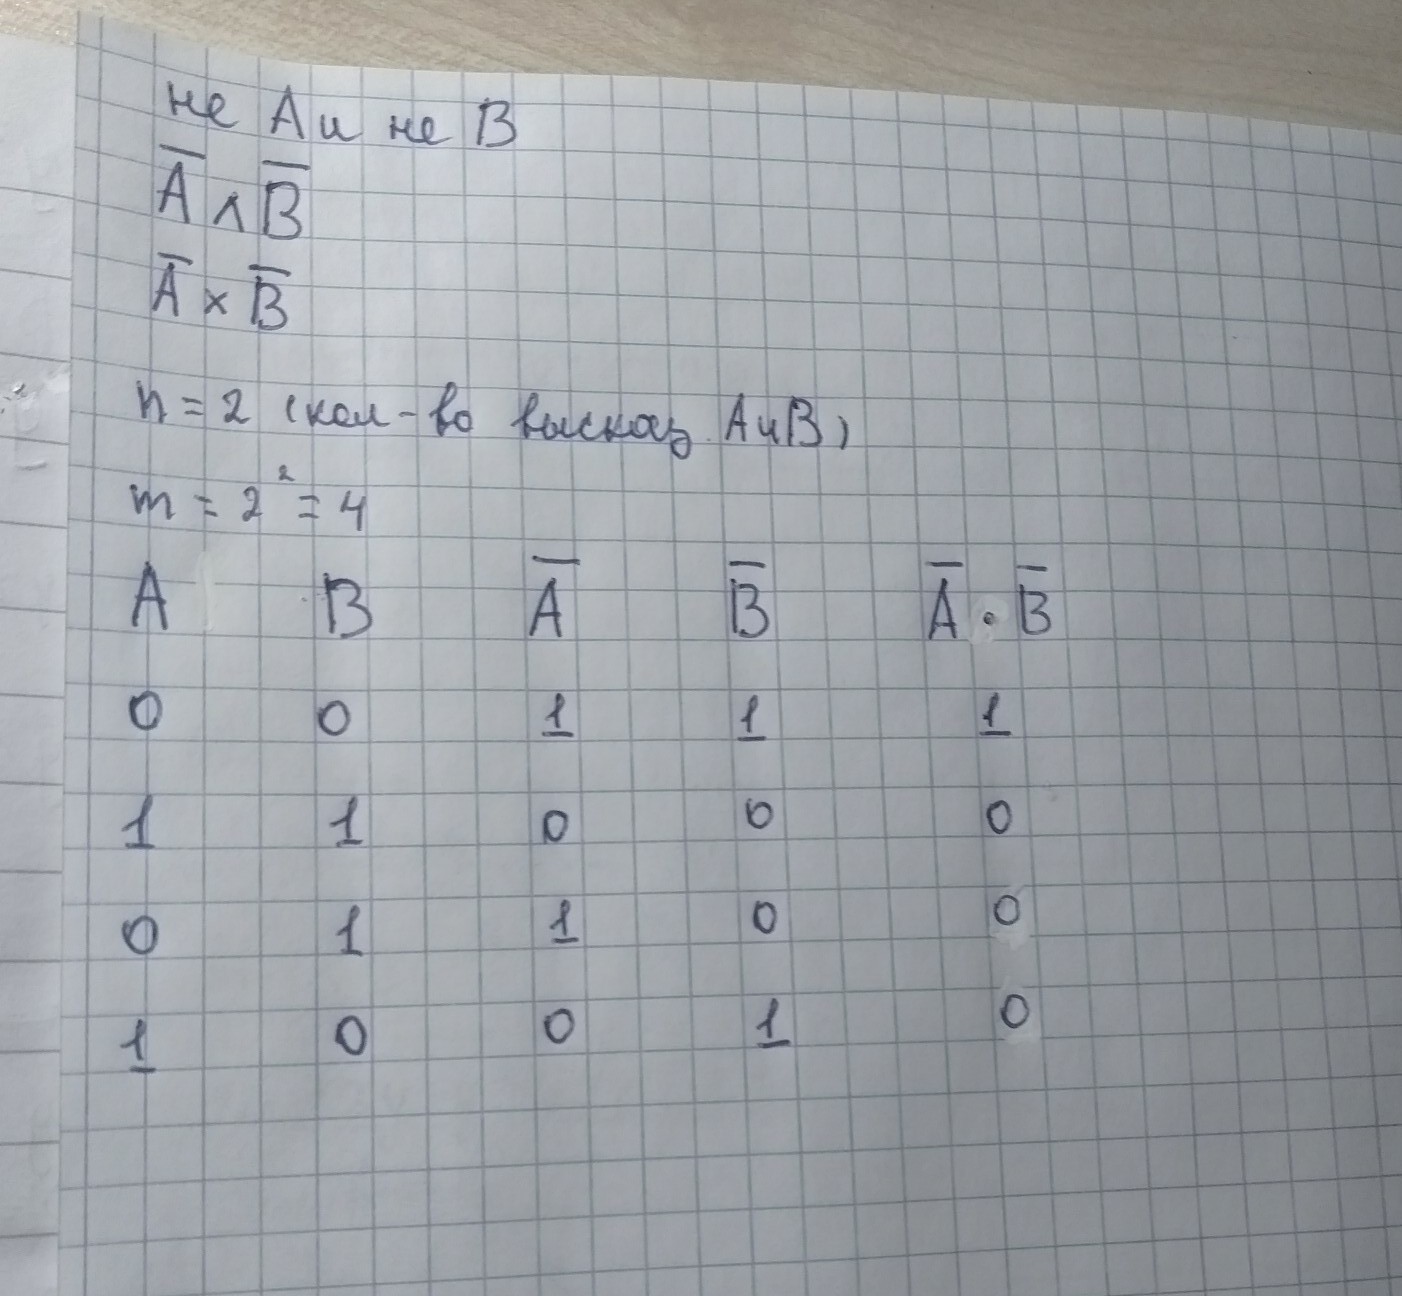 не A и не B
A̅ ∧ B̅
A̅ × B̅
n = 2 (кол-во высказ. A и B)
m = 2² = 4
A B A̅ B̅ A̅ · B̅
0 0 1 1 1
1 1 0 0 0
0 1 1 0 0
1 0 0 1 0